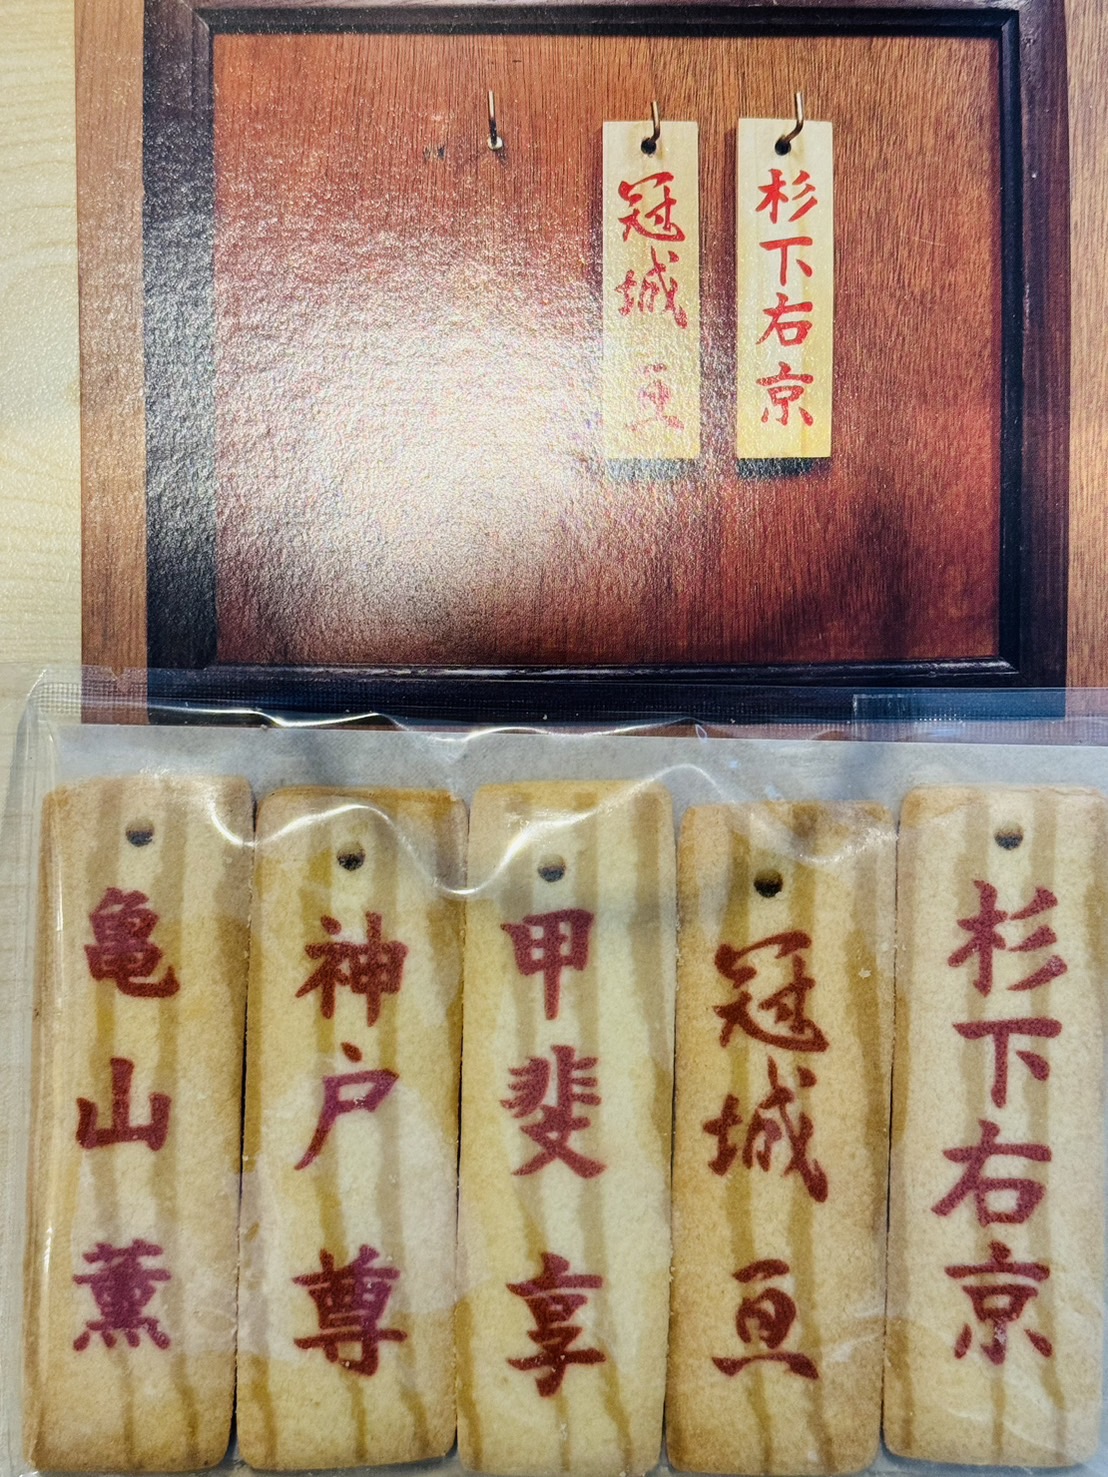 杉下右京
冠城亘
杉下右京
冠城亘
甲斐享
神戸尊
亀山薫